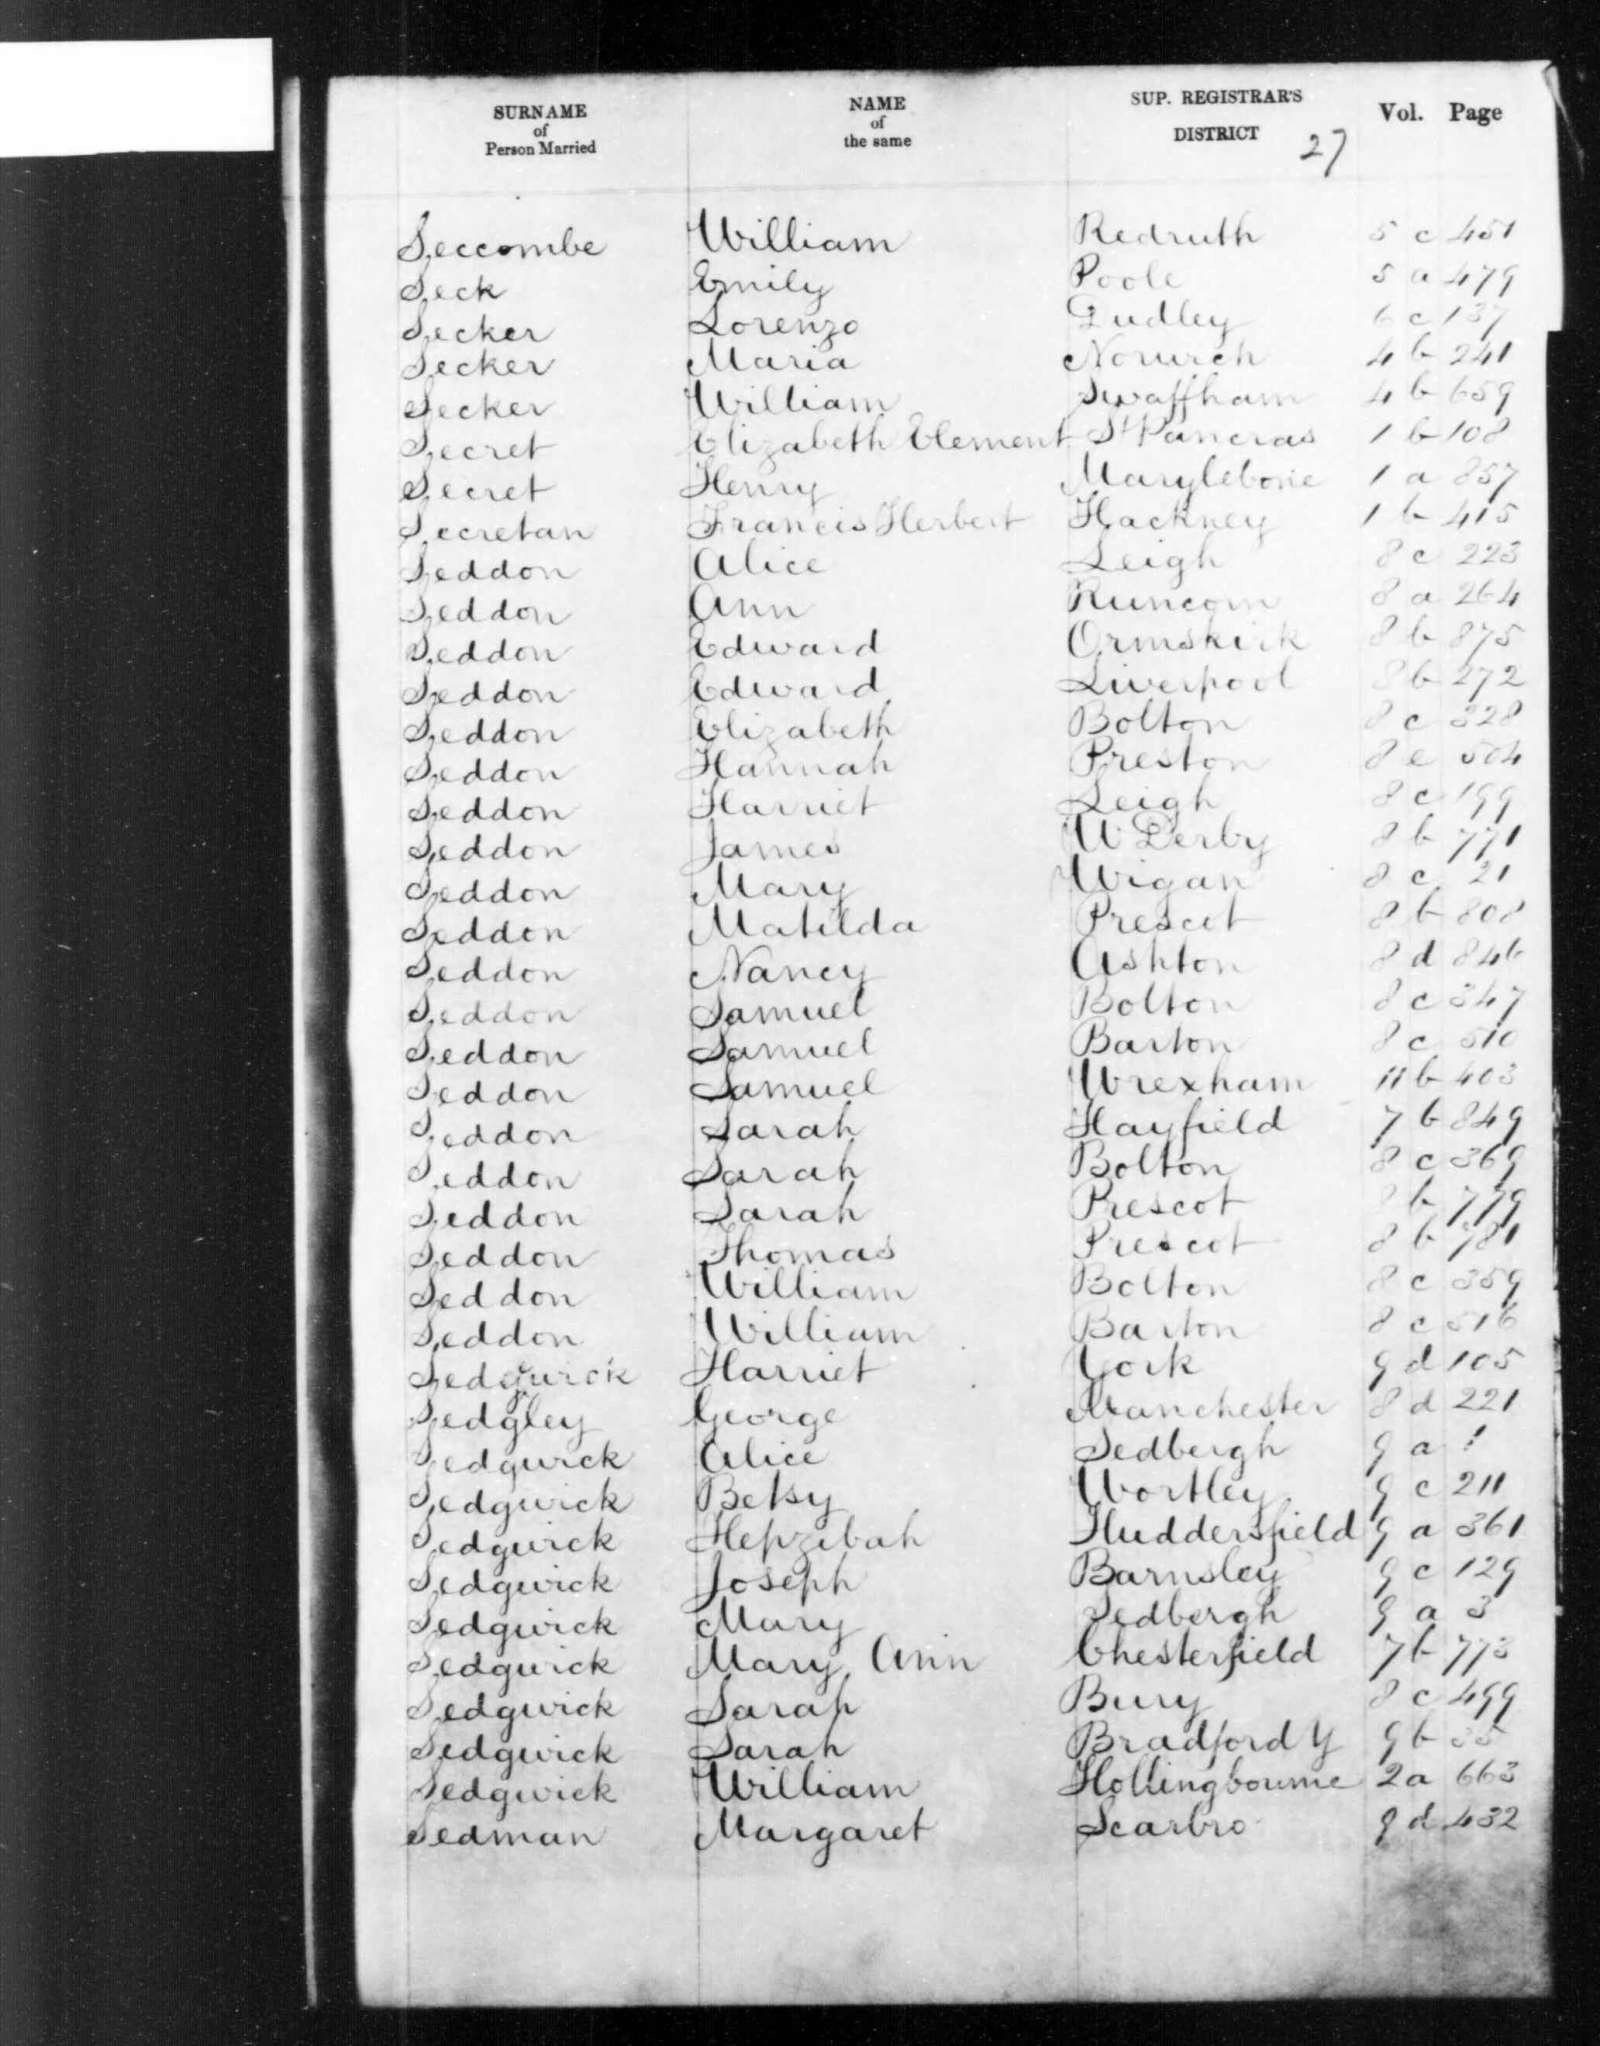 SURNAME of Person Married NAME of the same SUP. REGISTRAR'S DISTRICT 27 Vol. Page
Seccombe William Redruth 5 c 451
Seck Emily Poole 5 a 479
Secker Lorenzo Dudley 6 c 137
Secker Maria Norwich 4 b 241
Secker William Swaffham 4 b 659
Secret Elizabeth Clement St Pancras 1 b 108
Secret Henry Marylebone 1 a 857
Secretan Francis Herbert Hackney 1 b 415
Seddon Alice Leigh 8 c 223
Seddon Ann Runcorn 8 a 264
Seddon Edward Ormskirk 8 b 875
Seddon Edward Liverpool 8 b 272
Seddon Elizabeth Bolton 8 c 328
Seddon Hannah Preston 8 e 504
Seddon Harriet Leigh 8 c 199
Seddon James W Derby 8 b 771
Seddon Mary Wigan 8 c 21
Seddon Matilda Prescot 8 b 808
Seddon Nancy Ashton 8 d 846
Seddon Samuel Bolton 8 c 347
Seddon Samuel Barton 8 c 510
Seddon Samuel Wrexham 11 b 403
Seddon Sarah Hayfield 7 b 849
Seddon Sarah Bolton 8 c 369
Seddon Sarah Prescot b 779
Seddon Thomas Prescot 8 b 781
Seddon William Bolton 8 c 359
Seddon William Barton 8 c 516
Sedgwick Harriet York 9 d 105
Sedgley George Manchester 8 d 221
Sedgwick Alice Sedbergh 9 a 1
Sedgwick Betsy Wortley 9 c 211
Sedgwick Hepzibah Huddersfield 9 a 361
Sedgwick Joseph Barnsley 9 c 129
Sedgwick Mary Sedbergh 9 a 3
Sedgwick Mary Ann Chesterfield 7 b 773
Sedgwick Sarah Bury 8 c 499
Sedgwick Sarah Bradford Y 9 b
Sedgwick William Hollingbourne 2 a 663
Sedman Margaret Scarbro 9 d 432